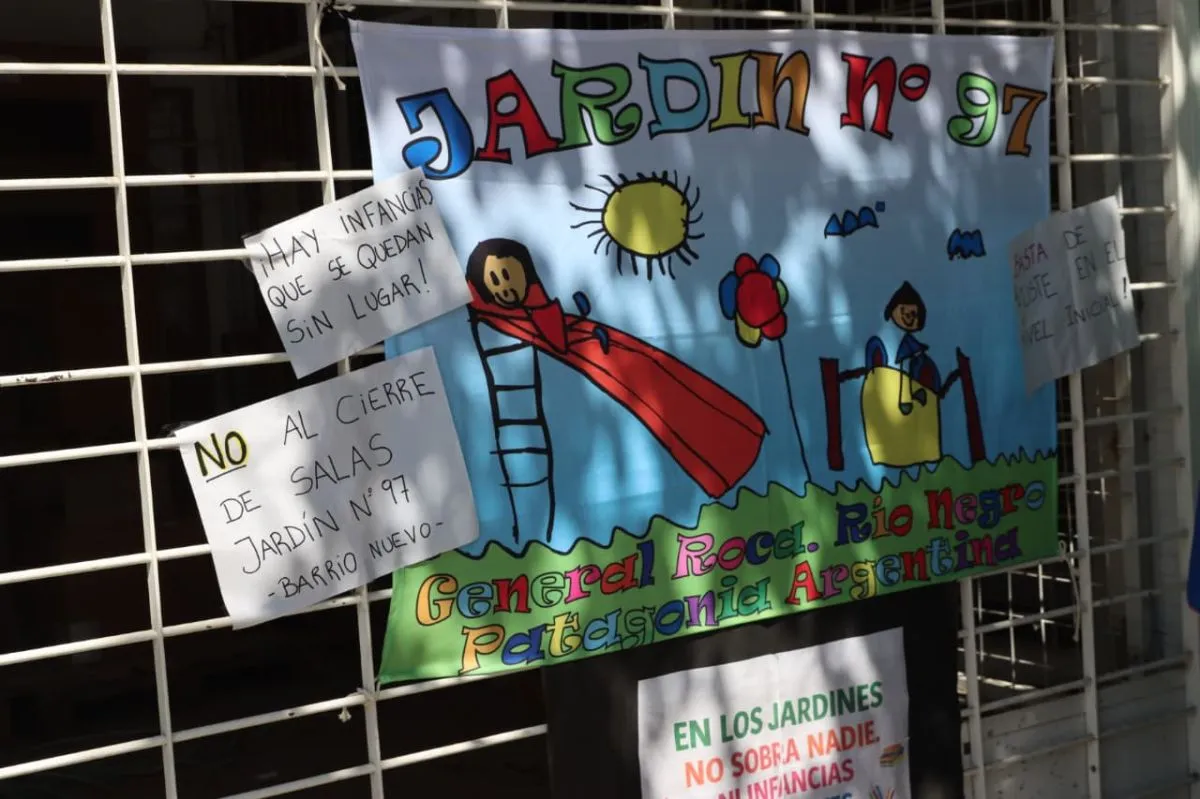 JARDIN Nº 97
¡HAY INFANCIAS
QUE SE QUEDAN
SIN LUGAR!
NO AL CIERRE
DE SALAS
JARDÍN N° 97
- BARRIO NUEVO -
DE
EN EL
INICIAL!
General Roca. Rio Negro
Patagonia Argentina
EN LOS JARDINES
NO SOBRA NADIE.
NI INFANCIAS